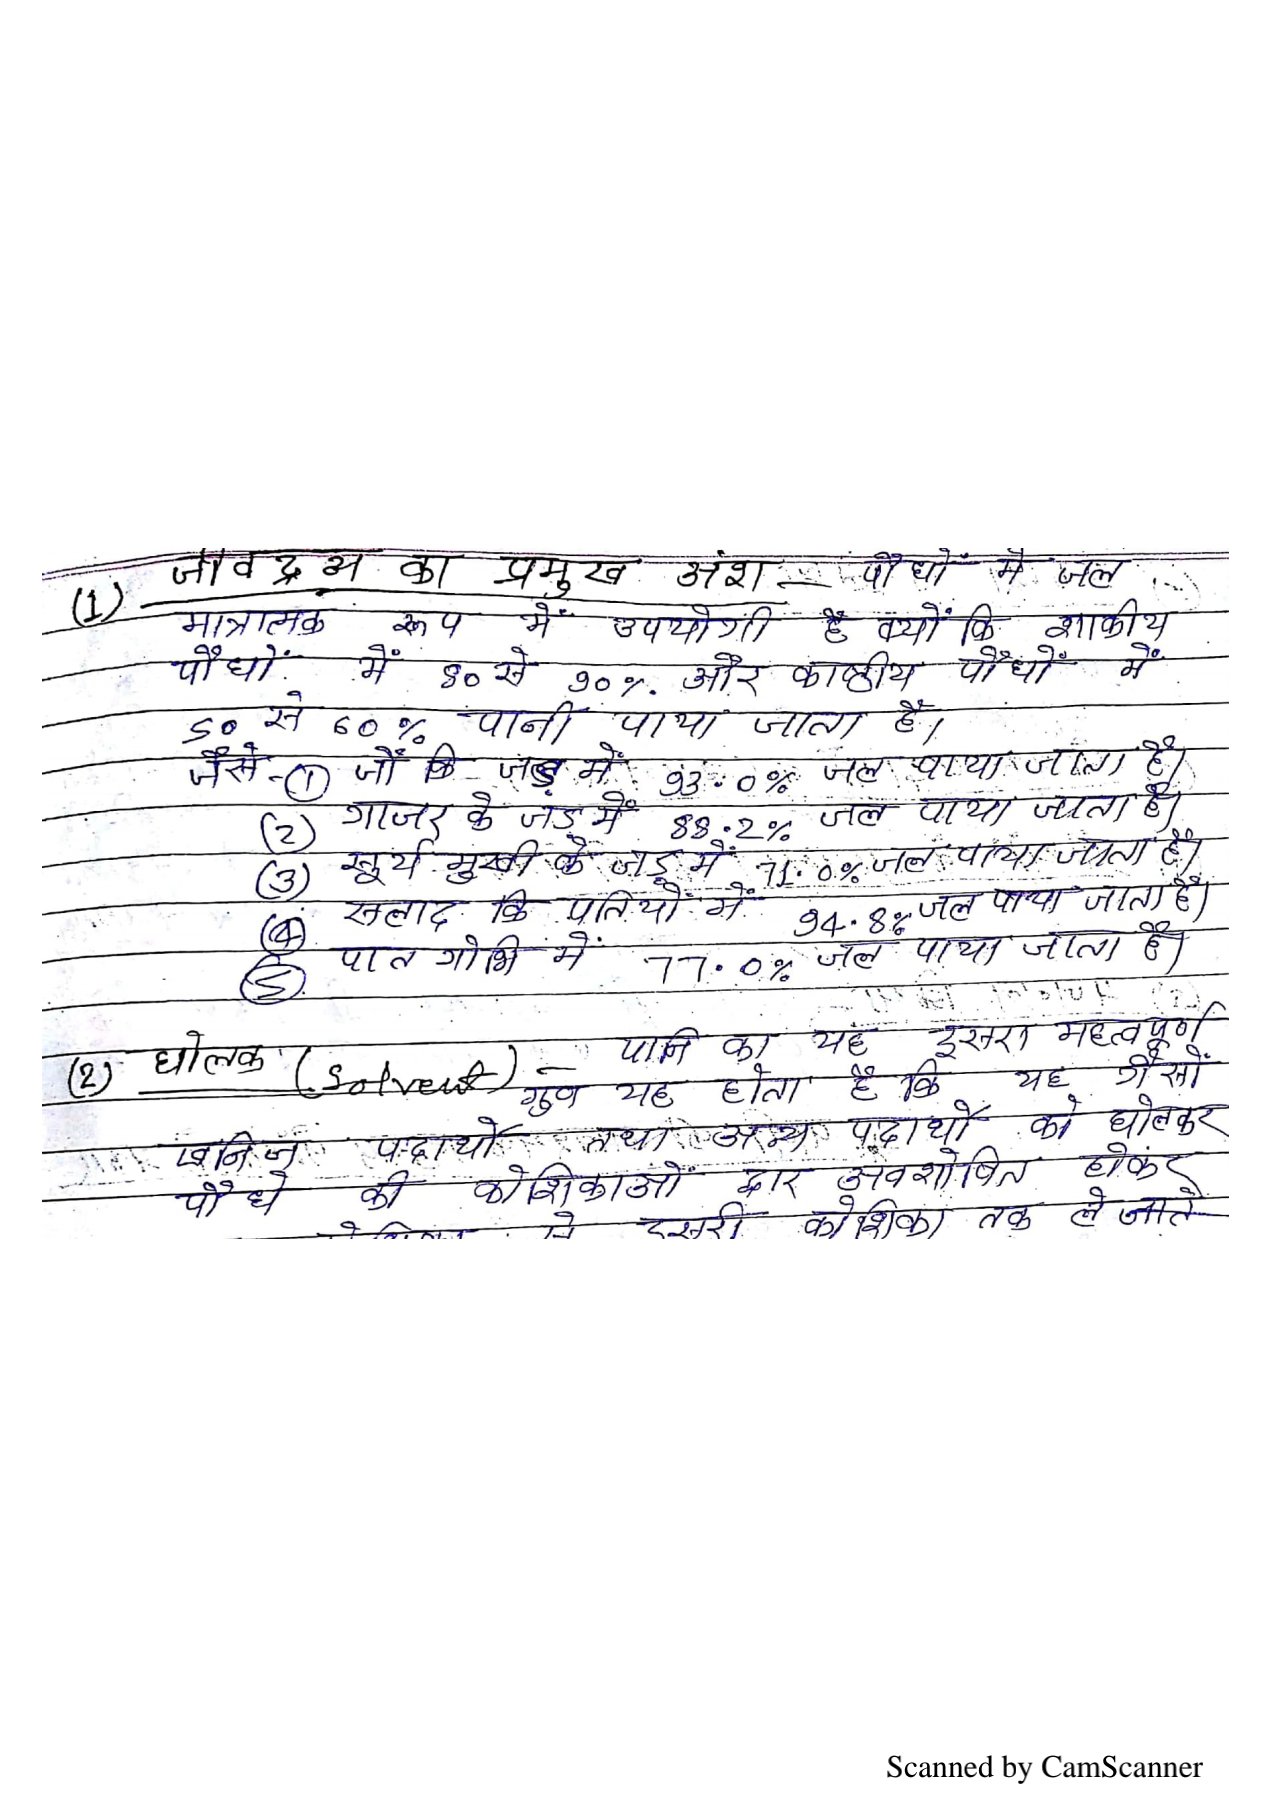 (1) जीवद्रव्य का प्रमुख अंश — पौधों में जल
मात्रात्मक रूप में उपयोगी है क्यों कि शाकीय
पौधों में 80 से 90%. और काष्ठीय पौधों में
50 से 60% पानी पाया जाता है।
जैसे - (1) जौ कि जड़ में 93.0% जल पाया जाता है।
(2) गाजर के जड़ में 88.2% जल पाया जाता है।
(3) सूर्य मुखी के जड़ में 71.0% जल पाया जाता है।
(4) सलाद कि पतियों में 94.8% जल पाया जाता है।
(5) पात गोभि में 77.0% जल पाया जाता है।
(2) घोलक (Solvent) — पानि का यह दुसरा महत्वपूर्ण
गुण यह होता है कि यह गैसों
खनिज पदार्थो तथा अन्य पदार्थो को घोलकर
पौधे की कोशिकाओं द्वार अवशोषित होकर
से दुसरी कोशिका तक ले जाते
Scanned by CamScanner